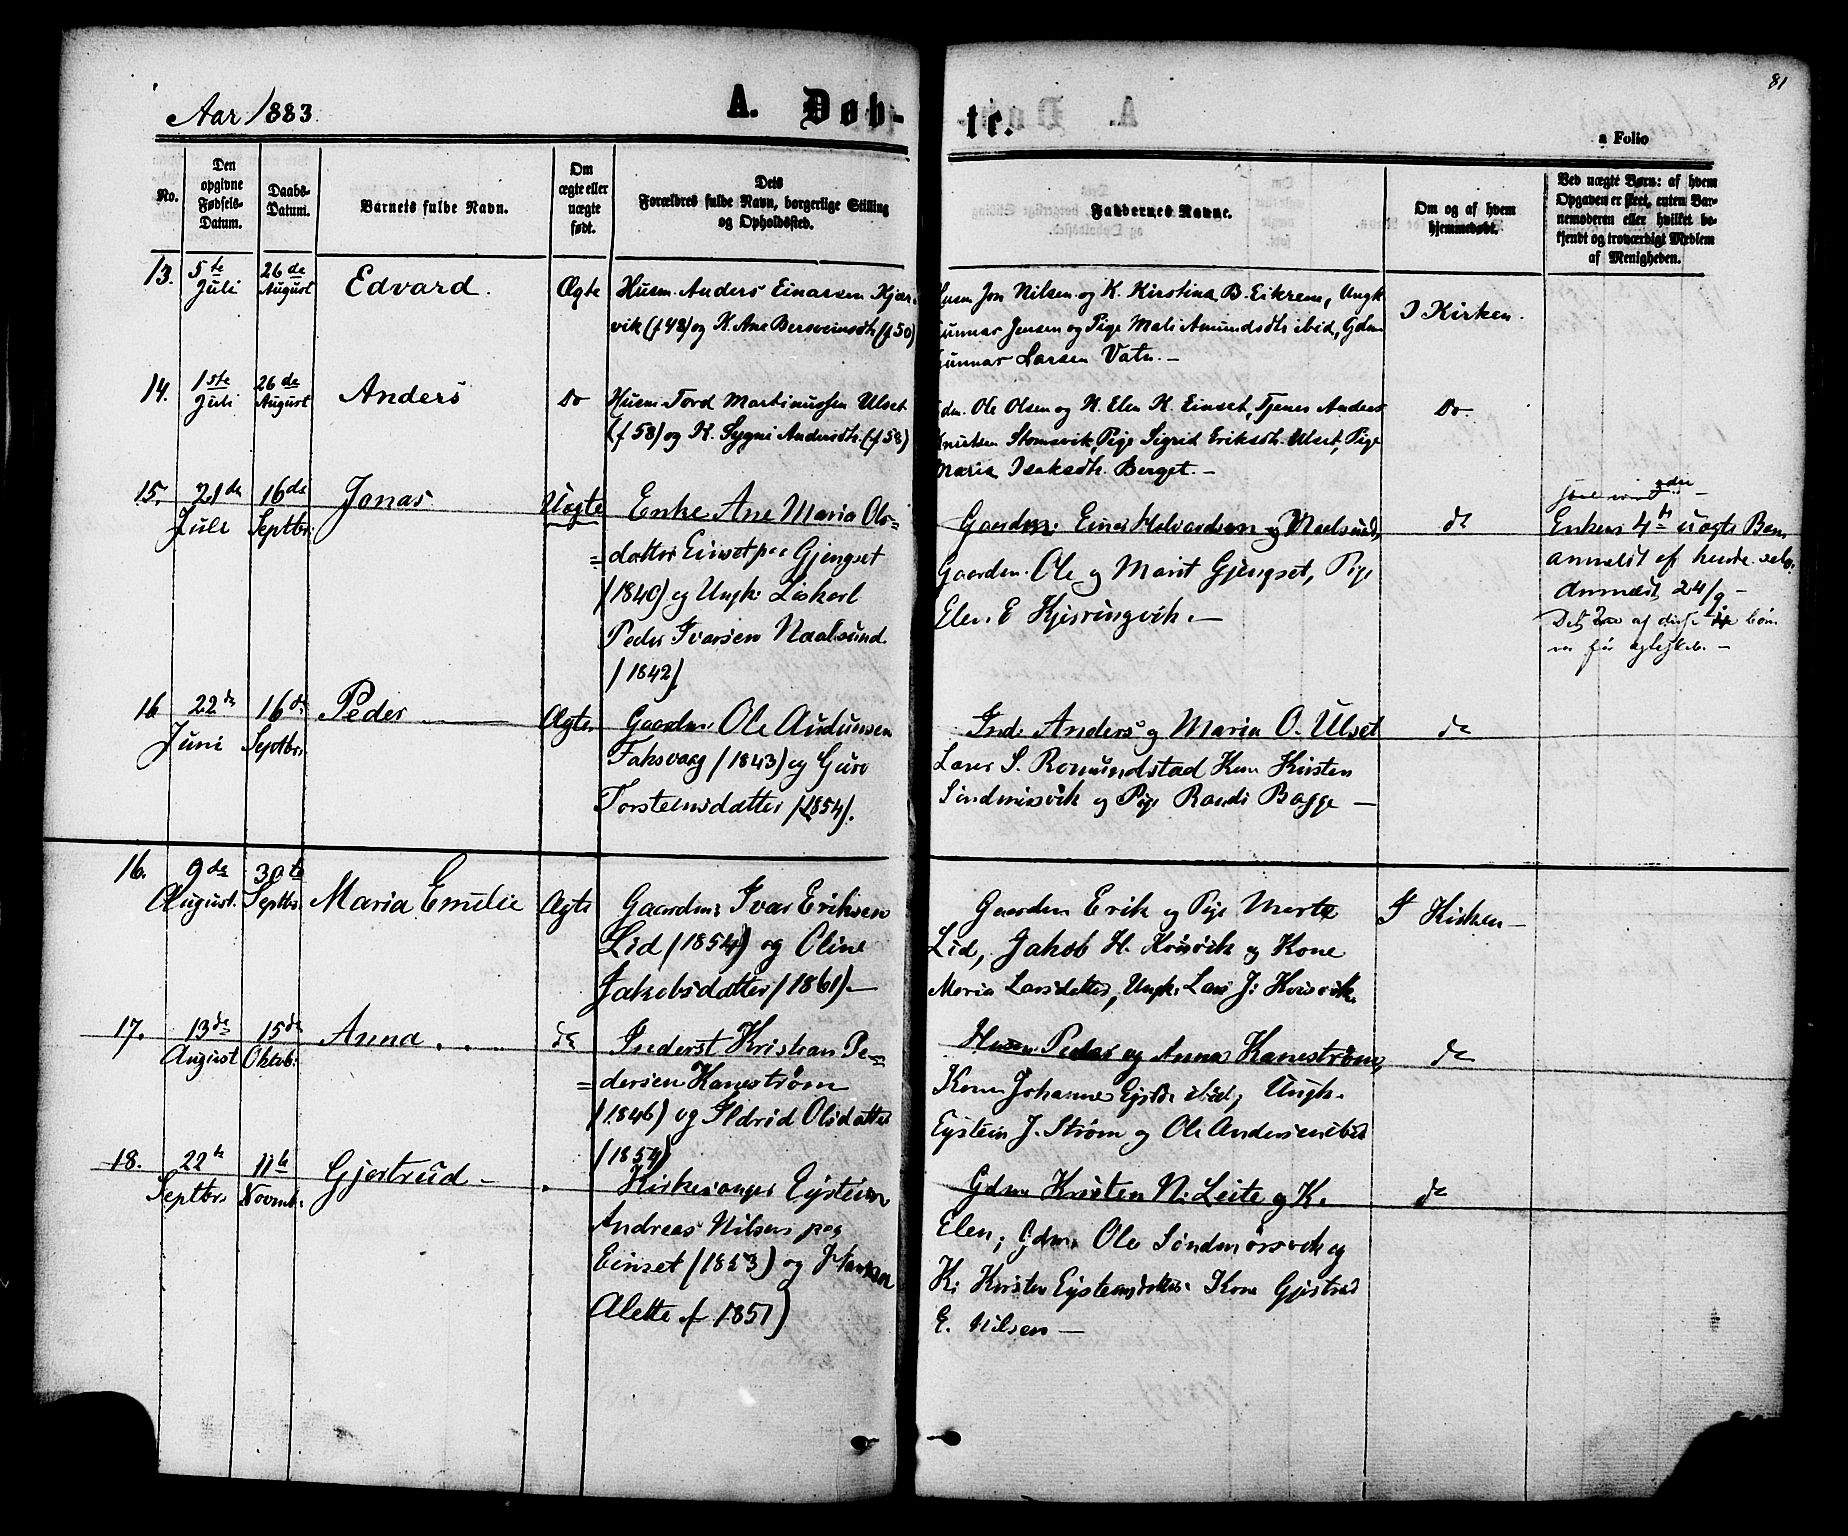 81
Aar 1883.
A. Døb-
te.
a Folio
No.
Den
opgivne
Fødsels-
Datum.
Daabs-
Datum.
Barnets fulde Navn.
Om
ægte eller
uægte
født.
Dets
Forældres fulde Navn, borgerlige Stilling
og Opholdssted.
Faddernes Navne.
Om og af hvem
hjemmedøbt.
Ved uægte Børn: af hvem
Opgaven er skeet, enten Bar-
nemoderen eller hvilket be-
kjendt og troværdigt Medlem
af Menigheden.
13.
5te
Juli
26de
August
Edvard.
Ægte
Husm. Anders Einarsen Kjør-
vik (f 48) og K. Ane Bersveinsdtr. (f 50)
Husm Jon Nilsen og K. Kirstina B. Eikrem, Ungk
Gunnar Jensen og Pige Mali Amundsdtr ibid, Gdm
Gunnar Larsen Vatn. —
I Kirken.
14.
1ste
Juli
26de
August
Anders
Do
Husm. Tord Martinussen Ulset
(f 58) og K. Sygni Andersdtr. (f 58)
Gdm. Ole Olsen og K. Elen K. Einset, Tjener Anders
Knutsen Stomsvik, Pige Sigrid Eriksdtr. Ulset, Pige
Maria Isaksdtr. Berget. —
Do
15.
21de
Juli
16de
Septbr.
Jonas
Uægte
Enke Ane Maria Ols-
=datter Einset paa Gjengset
(1840) og Ungk.
Peder Ivarsen Naalsund
(1842)
Gaardm. Einar Halvardsen og Naalsund,
Gaardm. Ole og Marit Gjengset, Pige
Elen E Kjørsvingvik. —
do
Enkens 4de uægte Barn
anmeldt af hende selv.
Anmeldt 24/9 —
Det 2de af disse børn
er før ægteskab. —
16
22de
Juni
16de
Septbr.
Peder
Ægte
Gaardm. Ole Audunsen
Faksvaag (1843) og Guro
Torsteinsdatter (1854).
Ind. Anders og Maria O. Ulset
Lars S. Romundstad Kone Kirsten
Søndmørsvik og Pige Randi Bagge —
do
16.
9de
August.
30te
Septbr.
Maria Emelie
Ægte
Gaardm: Ivar Eriksen
Lid (1854) og Oline
Jakobsdatter (1861) —
Gaardm Erik og Pige Marte
Lid, Jakob H. Korsvik og Kone
Maria Larsdatter, Ungk. Lars J. Korsvik.
I Kirken —
17.
13de
August
15de
Oktob.
Anna
do
Inderst Kristian Pe-
=dersen Kanestrøm
(1846) og Ildrid Olsdatter
(1854)
Husm Peder og Anna Kanestrøm,
Kone Johanne Eysdtr ibid, Ungk.
Eystein J. Strøm og Ole Andersen ibid
do
18.
22de
Septbr.
11te
Novmb.
Gjertrud —
Kirkesanger Eystein
Andreas Nilsen paa
Einset (1853) og Hanna
Alette f 1851)
Gdm Kristen N. Leite og K.
Elen, Gdm. Ole Søndmørsvik og
K. Kirsten Eysteinsdatter Kone Gjertrud
E. Nilsen —
do